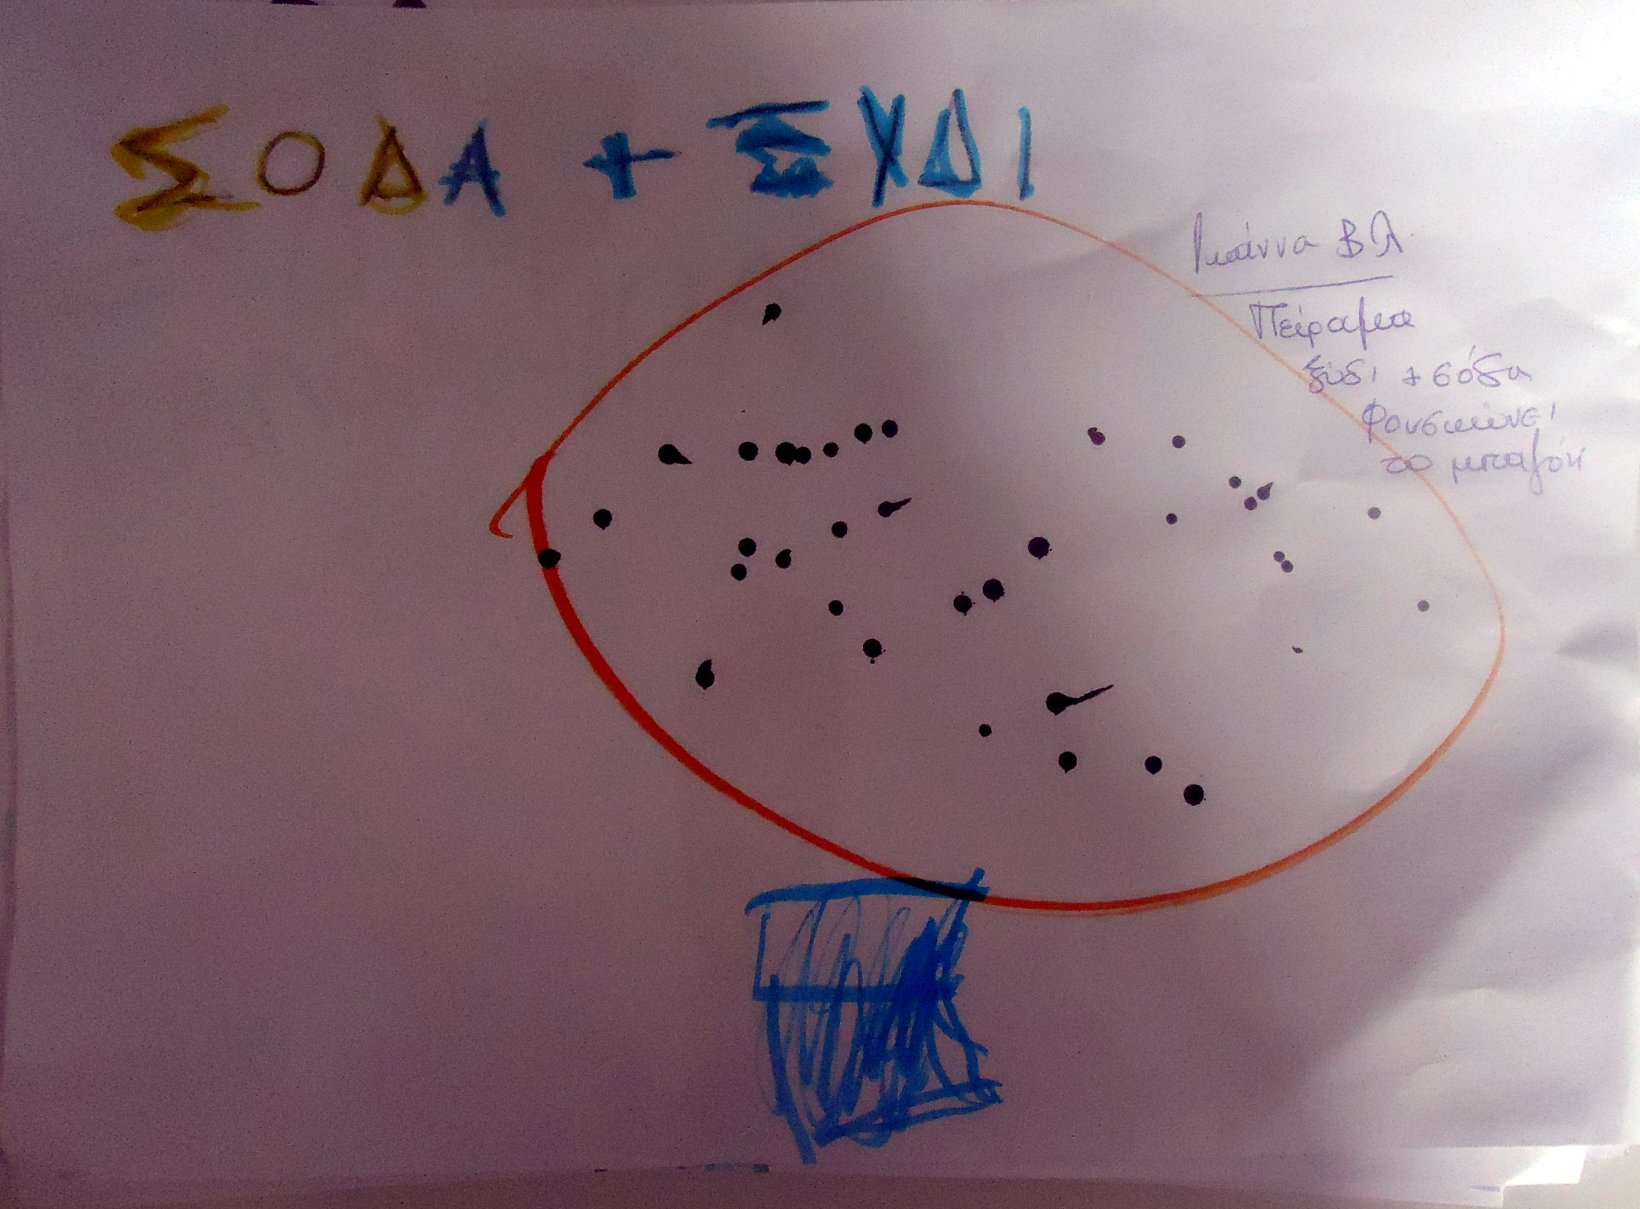 ΣΟΔΑ + ΞΥΔΙ
Ιωάννα Βλ.
Πείραμα
ξύδι + σόδα
Φουσκώνει
το μπαλόνι